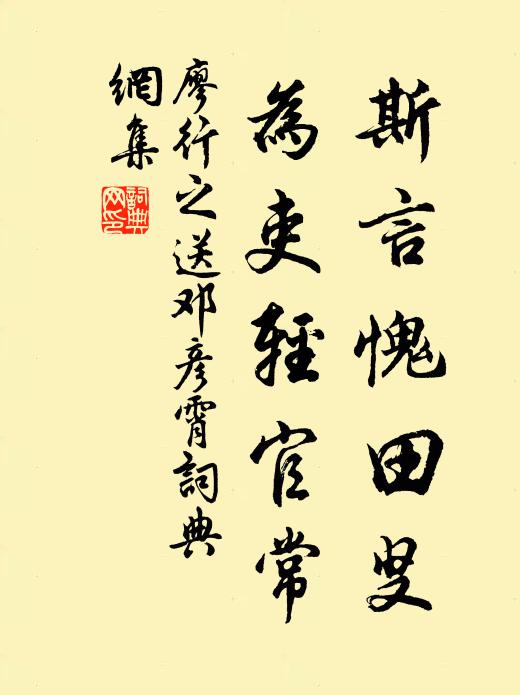 斯言愧田叟
為吏輕官常
廖行之送邓彦霄詞典
網集
詞典
网印